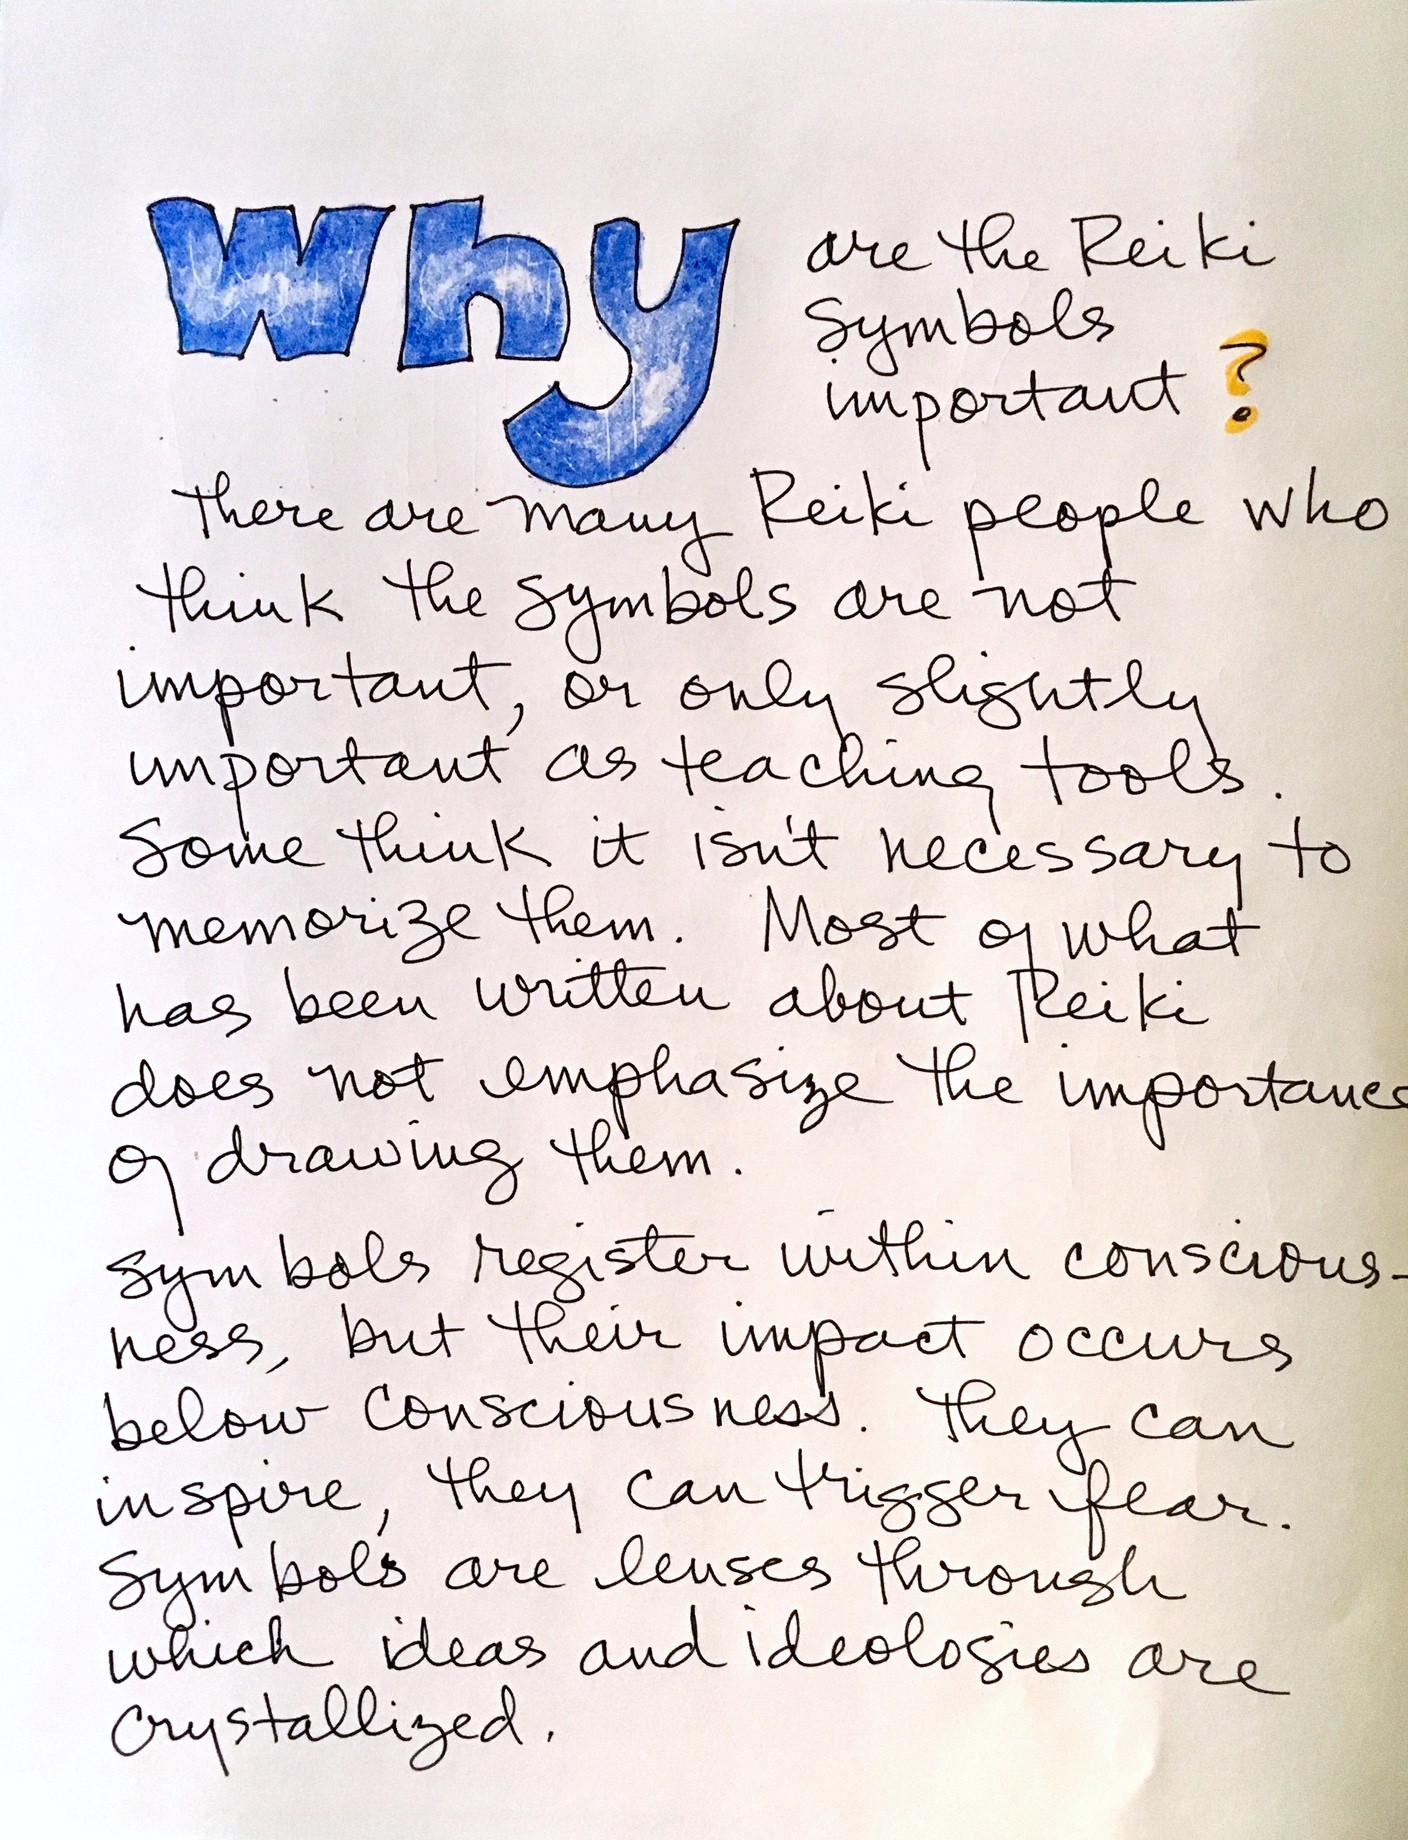 Why are the Reiki
Symbols
important?
There are many Reiki people who
think the symbols are not
important, or only slightly
important as teaching tools.
Some think it isn't necessary to
memorize them. Most of what
has been written about Reiki
does not emphasize the importance
of drawing them.
Symbols register within conscious-
ness, but their impact occurs
below consciousness. They can
inspire, they can trigger fear.
Symbols are lenses through
which ideas and ideologies are
crystallized.